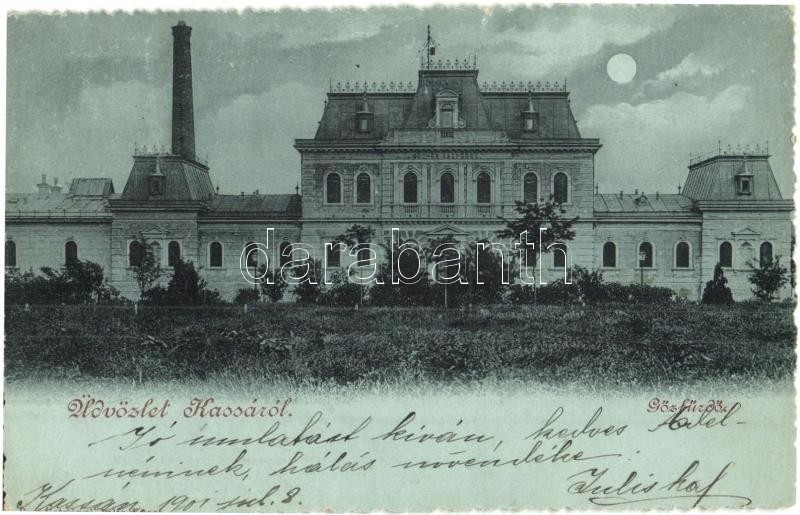 darabanth
Üdvözlet Kassáról.
Gőzfürdő.
Jó mulatást kíván, kedves Adél-
néninek, hálás növendéke
Juliska
Kassán, 1901 jul. 8.